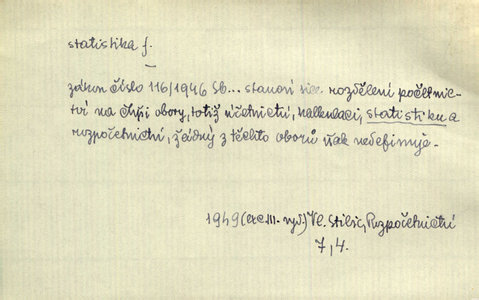 statistika f.
zákon číslo 116/1946 Sb... stanoví sice rozdělení početnic-
tví na čtyři obory, totiž účetnictví, kalkulaci, statistiku a
rozpočetnictví, žádný z těchto oborů však nedefinuje.
1949 (exc. III. vyd.) Vl. Stibic, Rozpočetnictví
7, 4.